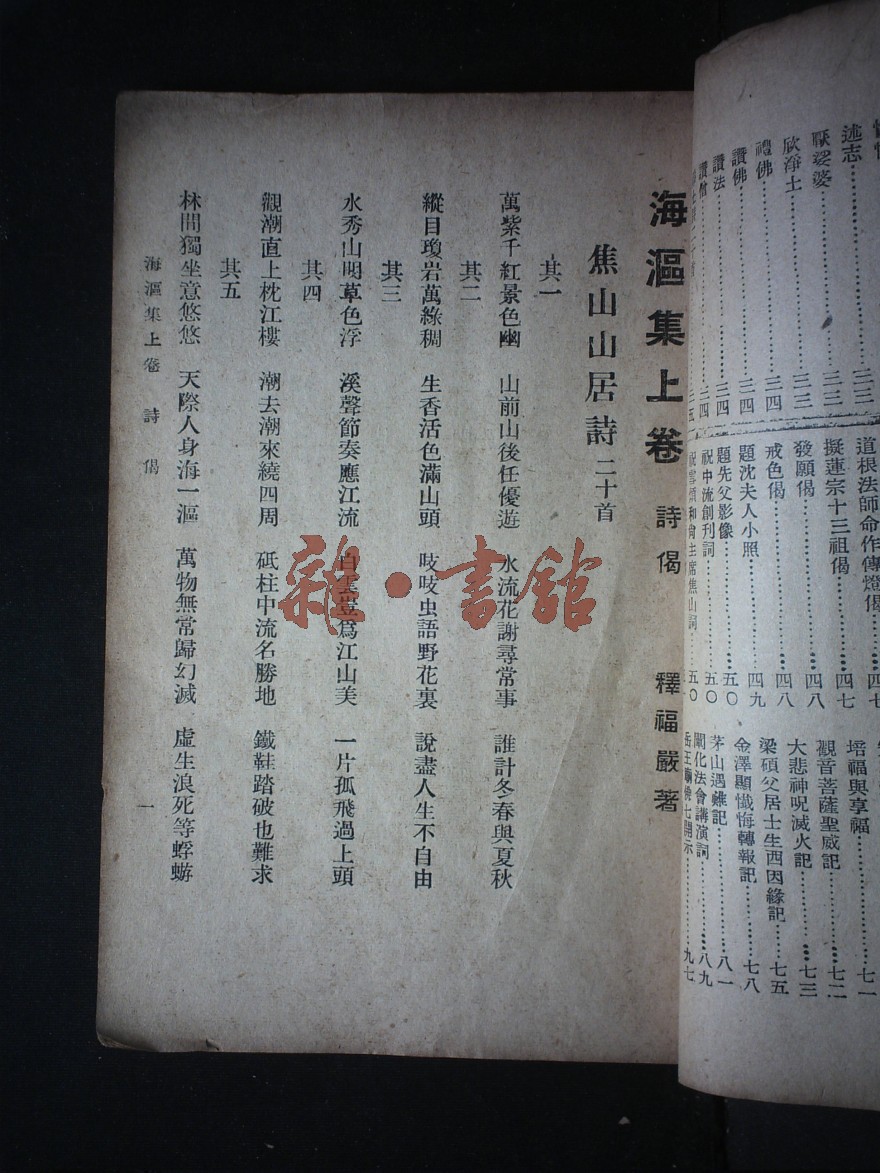 述志……三三
厭娑婆……三三
欣淨土……三三
禮佛……三四
讚佛……三四
讚法……三四
道根法師命作傳燈偈……四七
擬蓮宗十三祖偈……四七
發願偈……四八
戒色偈……四八
題沈夫人小照……四九
題先父影像……五〇
祝中流創刊詞……五〇
培福與享福……七一
觀音菩薩聖威記……七二
大悲神呪滅火記……七三
梁碩父居士生西因緣記……七五
金澤顯懺悔轉報記……七八
茅山遇難記……八一
闡化法會講演詞……八九
海漚集上卷 詩偈 釋福嚴著
焦山山居詩 二十首
其一
萬紫千紅景色幽 山前山後任優遊 水流花謝尋常事 誰計冬春與夏秋
其二
縱目瓊岩萬綠稠 生香活色滿山頭 吱吱虫語野花裏 說盡人生不自由
其三
水秀山明草色浮 溪聲節奏應江流 白雲豈爲江山美 一片孤飛過上頭
其四
觀潮直上枕江樓 潮去潮來繞四周 砥柱中流名勝地 鐵鞋踏破也難求
其五
林間獨坐意悠悠 天際人身海一漚 萬物無常歸幻滅 虛生浪死等蜉蝣
海漚集上卷 詩偈 一
雜·書館